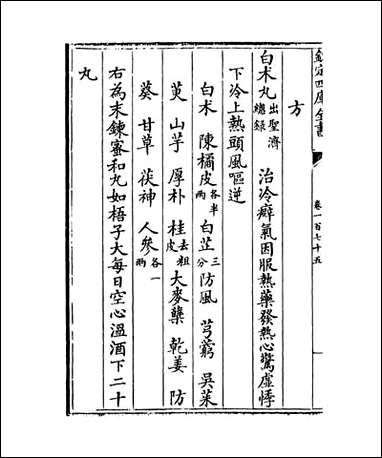 欽定四庫全書
卷一百七十五
方
白术丸出聖濟總錄 治冷癖氣因服熱藥發熱心驚虛悸
下冷上熱頭風嘔逆
白术 陳橘皮各半兩 白芷三分 防風 芎藭 吳茱
萸 山芋 厚朴 桂去粗皮 大麥櫱 乾姜 防
葵 甘草 茯神 人參各一兩
右為末鍊蜜和丸如梧子大每日空心溫酒下二十
丸